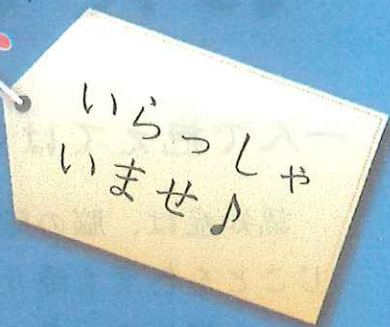 いらっしゃ
いませ♪